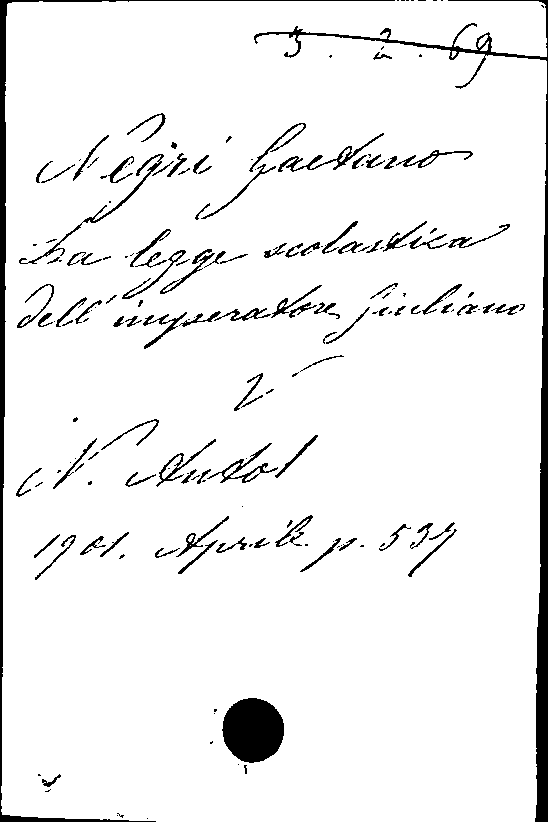 3. 2. 69
Negri Gaetano
La legge scolastica
dell'imperatore Giuliano
V
N. Antol
1901. Aprile p. 537